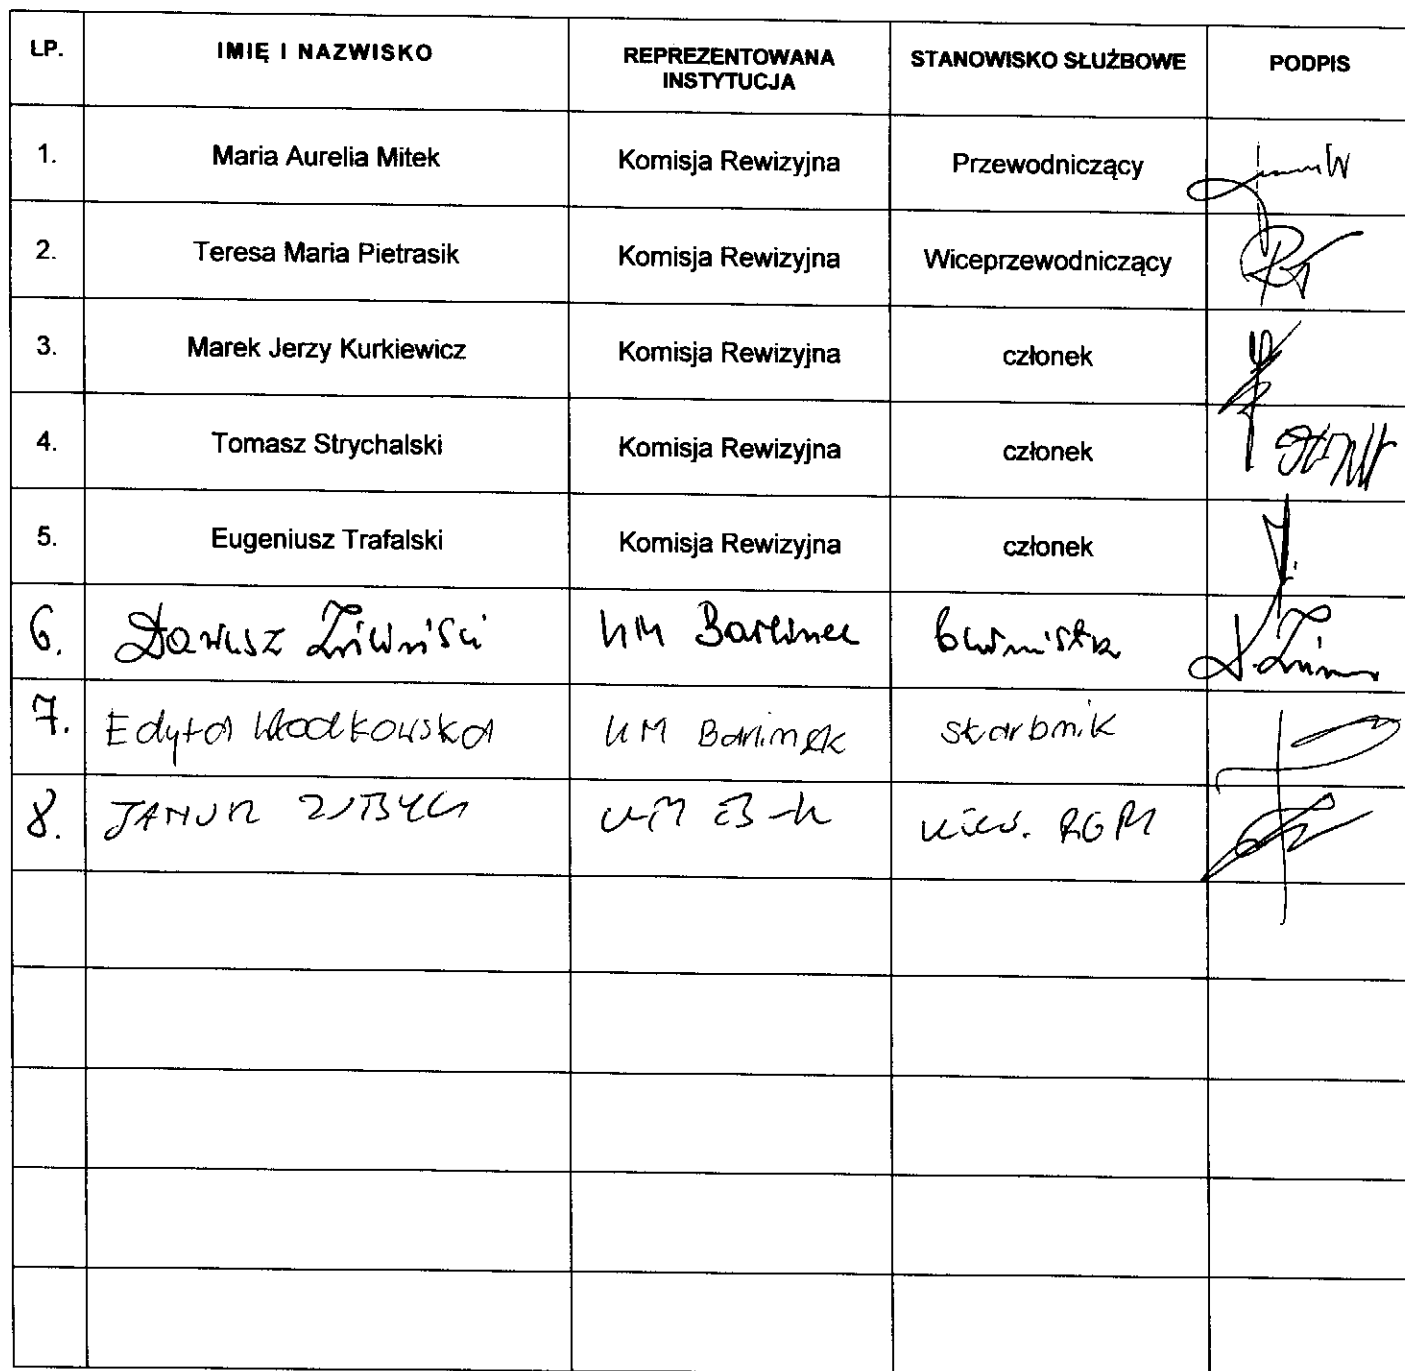 LP. IMIĘ I NAZWISKO REPREZENTOWANA INSTYTUCJA STANOWISKO SŁUŻBOWE PODPIS
1. Maria Aurelia Mitek Komisja Rewizyjna Przewodniczący
2. Teresa Maria Pietrasik Komisja Rewizyjna Wiceprzewodniczący
3. Marek Jerzy Kurkiewicz Komisja Rewizyjna członek
4. Tomasz Strychalski Komisja Rewizyjna członek
5. Eugeniusz Trafalski Komisja Rewizyjna członek
6. Dariusz UM Barlinek burmistrz
7. Edyta Włodkowska UM Barlinek skarbnik
8. JANUSZ UM B-k kier. RGM